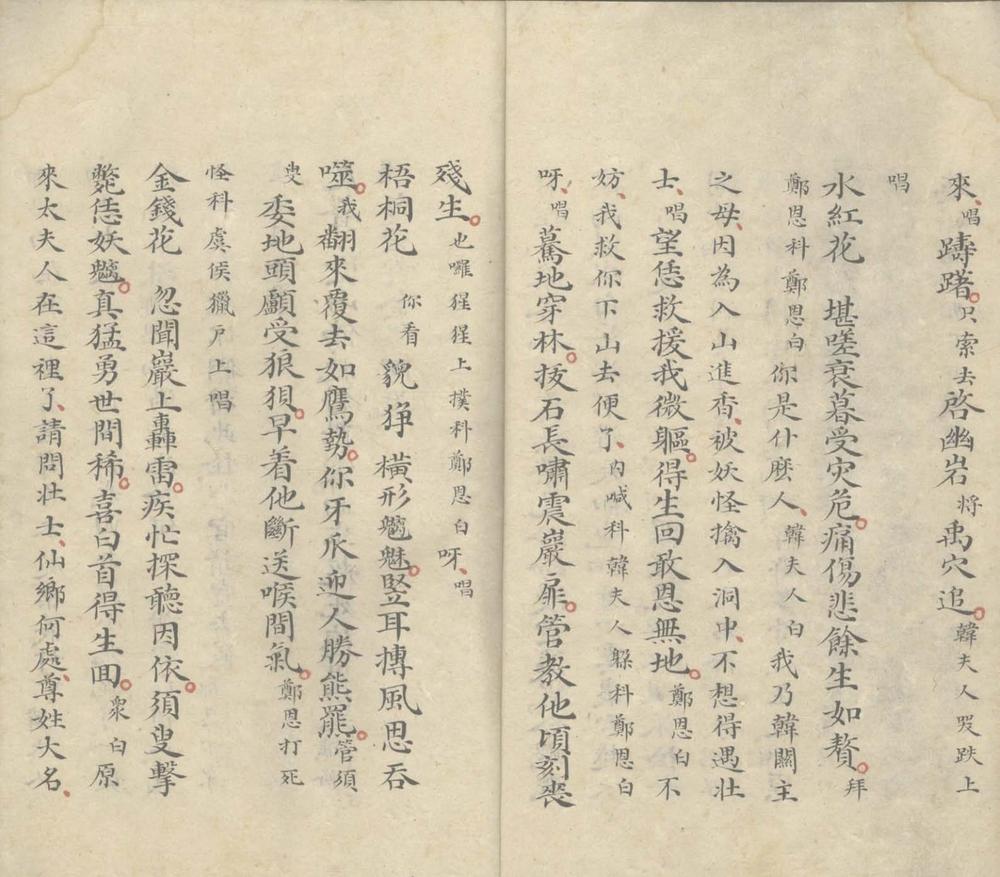 來唱躊躇只索去啓幽岩將禹穴追韓夫人哭跌上
唱
水紅花 堪嗟衰暮受灾危痛傷悲餘生如贅拜
鄭恩科鄭恩白你是什麽人韓夫人白我乃韓關主
之母因為入山進香被妖怪擒入洞中不想得遇壯
士唱望恁救援我微軀得生回敢恩無地鄭恩白不
妨我救你下山去便了内喊科韓夫人躲科鄭恩白
呀唱驀地穿林拔石長嘯震巖扉管教他頃刻喪
殘生也囉猩猩上撲科鄭恩白呀唱
梧桐花 你看貌猙橫形魑魅竪耳摶風思吞
噬我翻來覆去如鷹勢你牙爪迎人勝熊羆管須
叟委地頭顱受狼狽早着他斷送喉間氣鄭恩打死
怪科虞侯獵戶上唱
金錢花 忽聞巖上轟雷疾忙探聽因依須叟擊
斃恁妖魑真猛勇世間稀喜白首得生回衆白原
來太夫人在這裡了請問壯士仙鄉何處尊姓大名